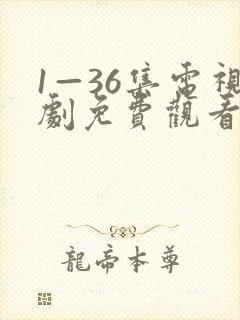 1—36集電視
劇免費觀看
龍帝本尊